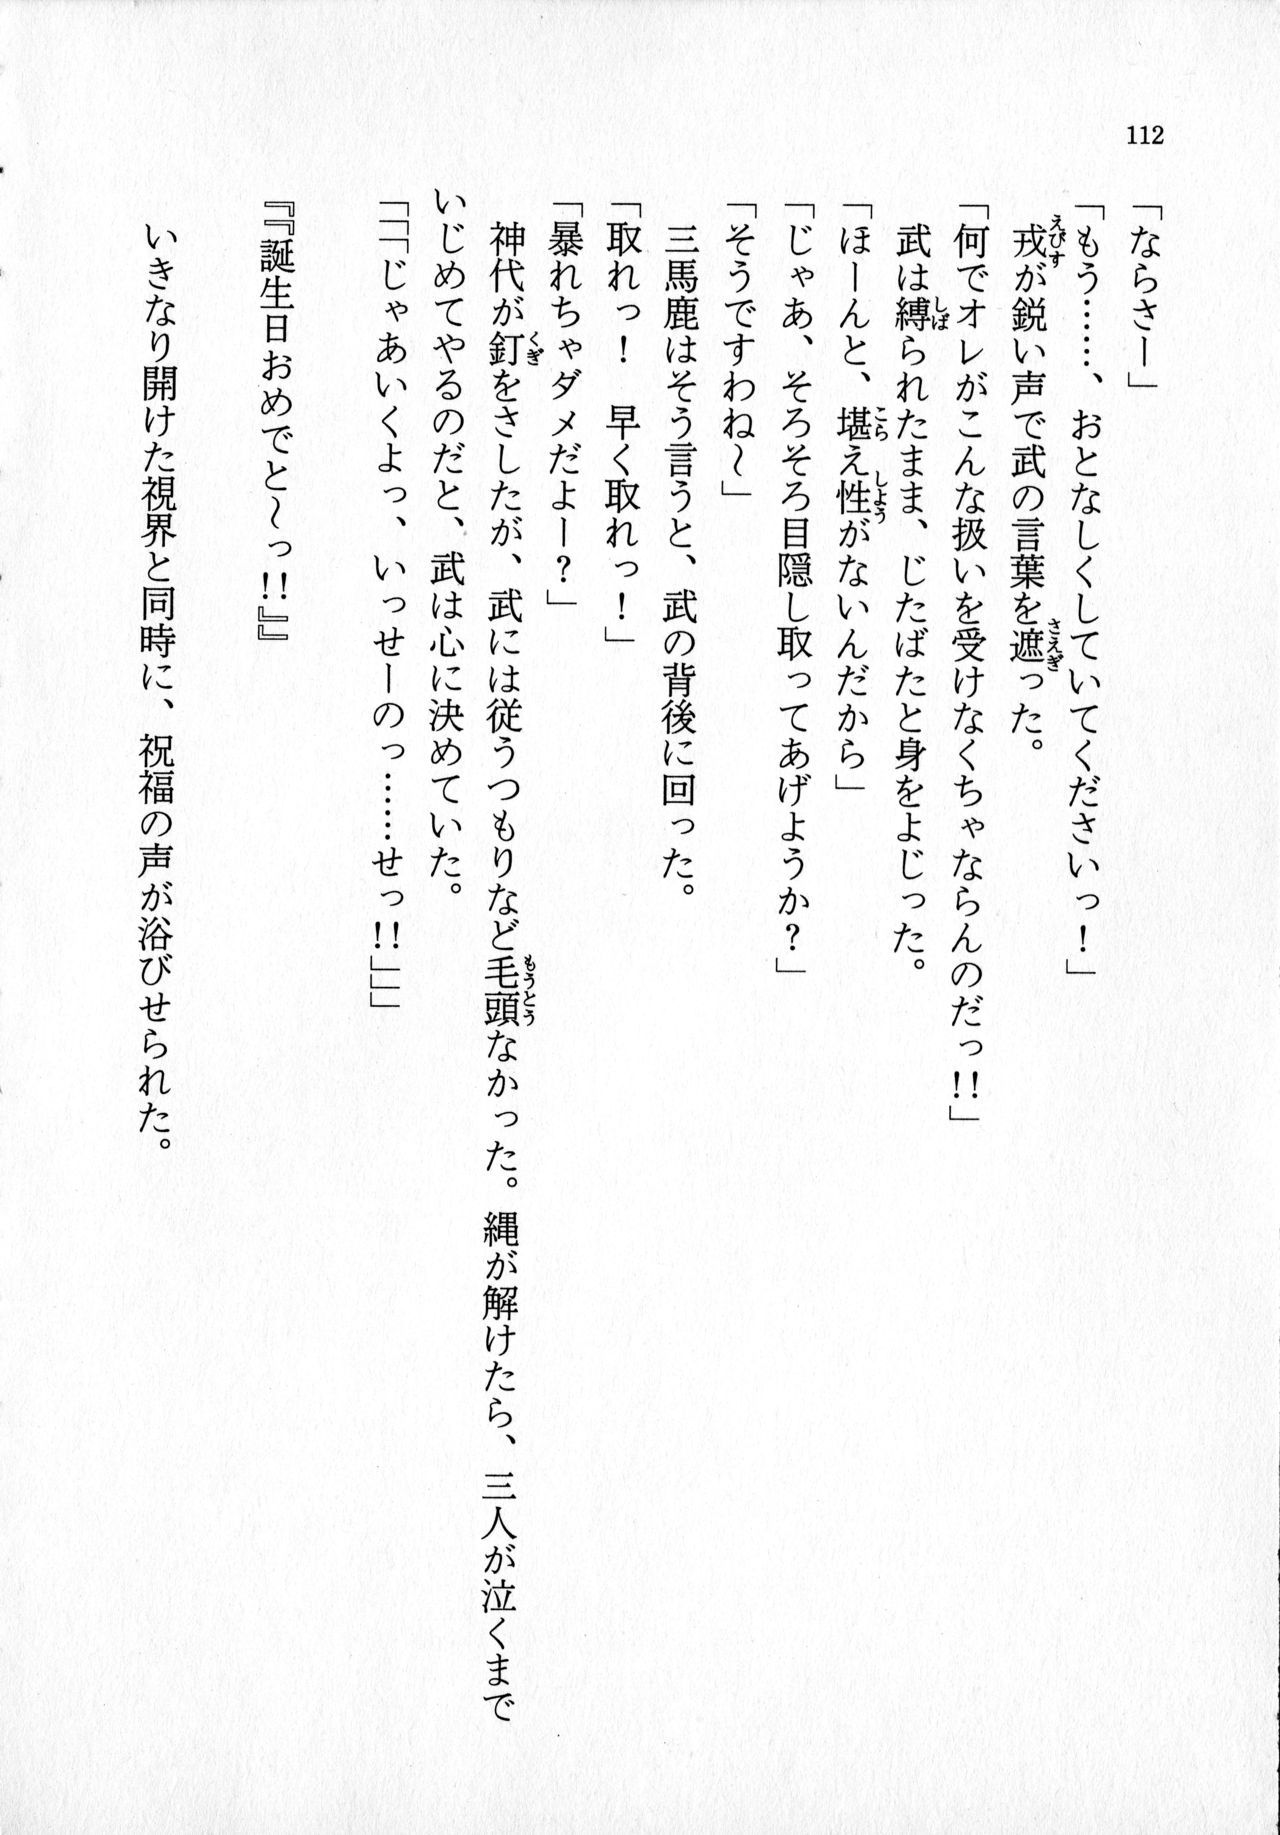 112
「ならさー」
「もう……、おとなしくしていてくださいっ！」
戎が鋭い声で武の言葉を遮った。
「何でオレがこんな扱いを受けなくちゃならんのだっ!!」
武は縛られたまま、じたばたと身をよじった。
「ほーんと、堪え性がないんだから」
「じゃあ、そろそろ目隠し取ってあげようか？」
「そうですわね～」
三馬鹿はそう言うと、武の背後に回った。
「取れっ！　早く取れっ！」
「暴れちゃダメだよー？」
神代が釘をさしたが、武には従うつもりなど毛頭なかった。縄が解けたら、三人が泣くまで
いじめてやるのだと、武は心に決めていた。
「「「じゃあいくよっ、いっせーのっ……せっ!!」」」
『『誕生日おめでと～っ!!』』
いきなり開けた視界と同時に、祝福の声が浴びせられた。